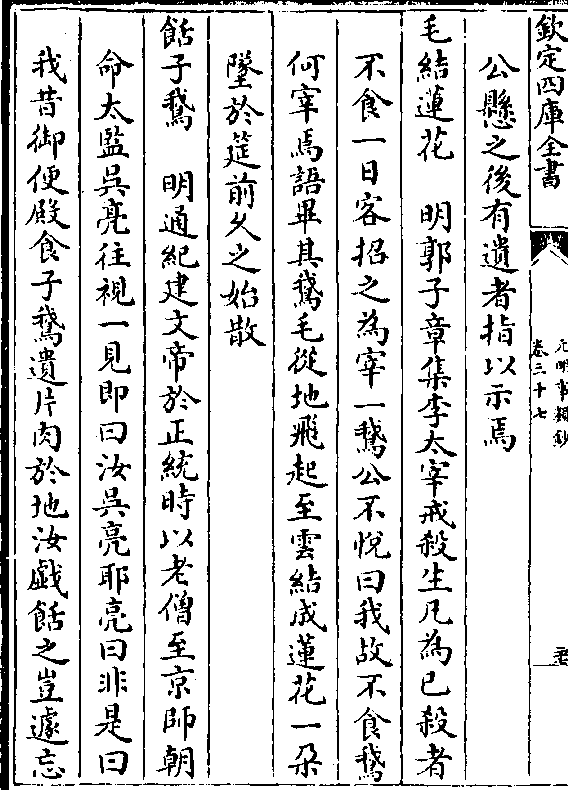 欽定四庫全書
元明事類鈔
卷三十七
公懸之後有遺者指以示焉
毛結蓮花　明郭子章集李太宰戒殺生凡為已殺者
不食一日客招之為宰一鵝公不悅曰我故不食鵝
何宰焉語畢其鵝毛從地飛起至雲結成蓮花一朶
墜於筵前久之始散
餂子鵝　明通紀建文帝於正統時以老僧至京師朝
命太監吳亮往視一見即曰汝吳亮耶亮曰非是曰
我昔御便殿食子鵝遺片肉於地汝戲餂之豈遽忘